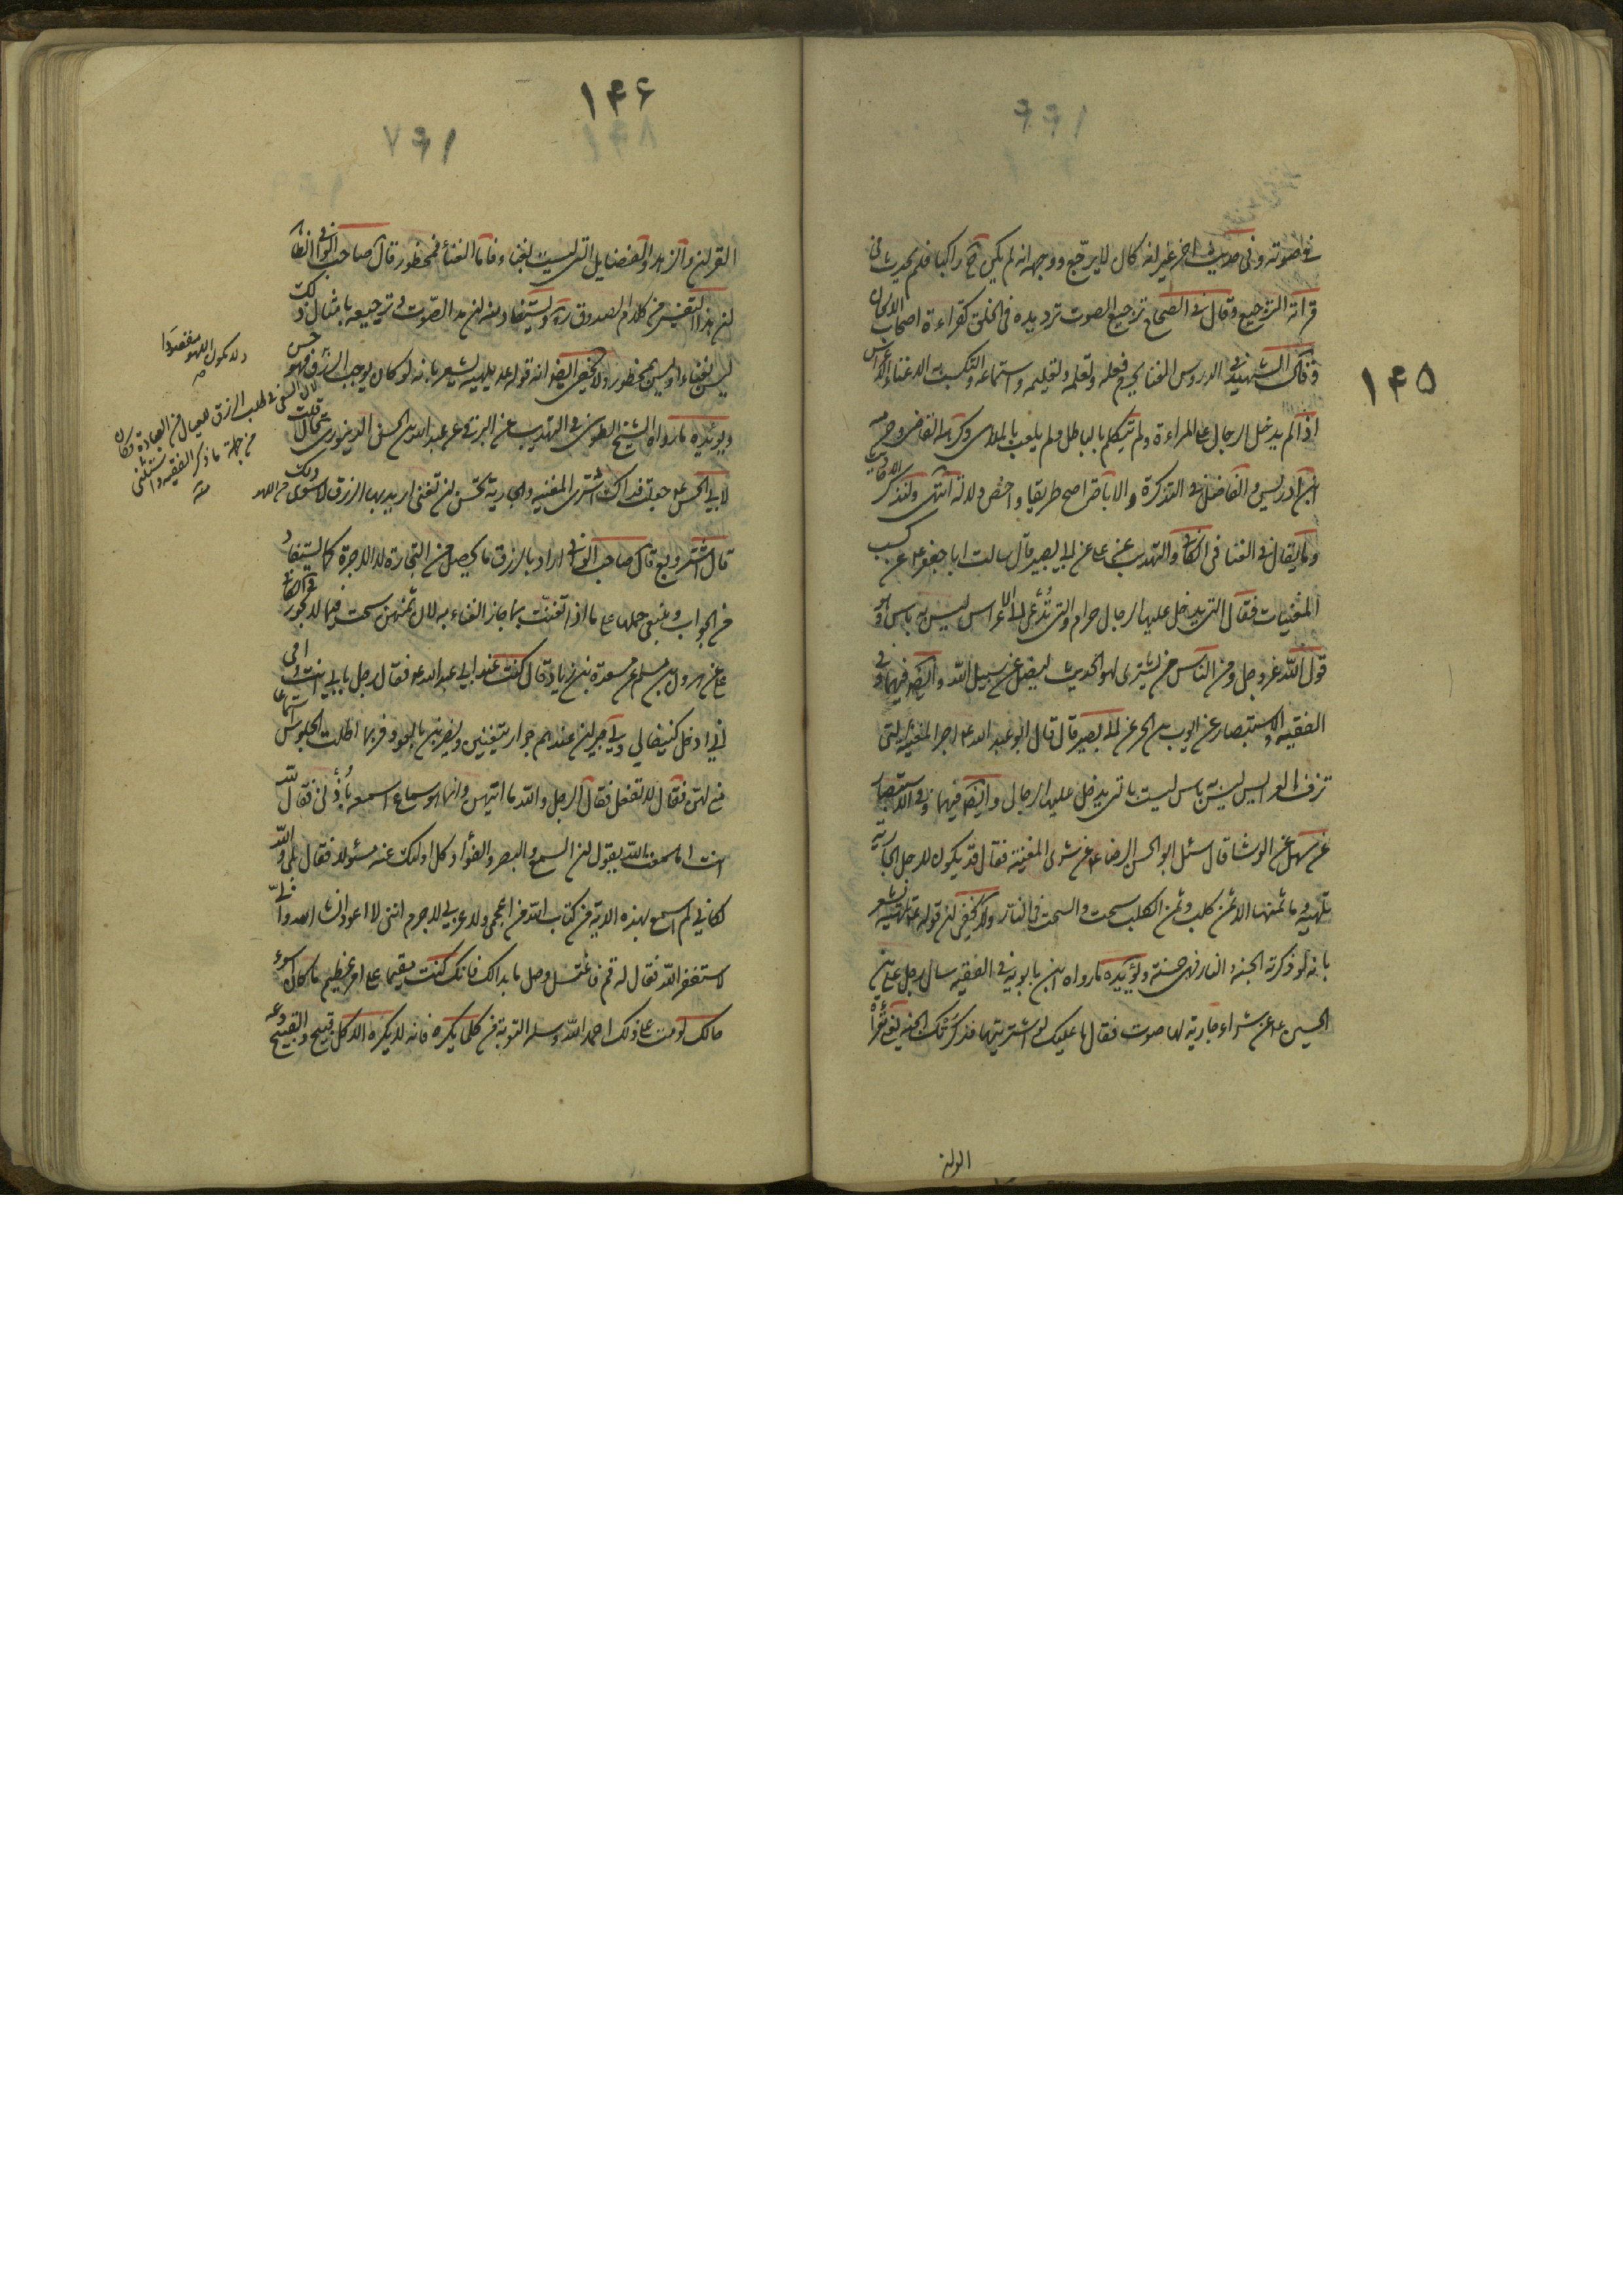 ۱۴۵
في صوته وفي حديث اخر غير انه كان لا يرجع ووجهه انه لم يكن ح راكبا فلم يحدث في
قراته الترجيع وقال في الصحاح ترجيع الصوت ترديده في الحلق كقراءة اصحاب الالحان
وقال الشهيد في الدروس الغناء يحرم فعله وتعلمه وتعليمه واستماعه والتكسب به الا غناء الاعراس
اذا لم يدخل الرجال على المراءة ولم تتكلم بالباطل ولم يلعب بالملاهي وكرهه القاضي وحرمه
ابن ادريس والفاضل في التذكرة والاباحة اصح طريقا واخص دلالة انتهى ولنذكر
ما يقال في الغنا في الكافي والتهذيب عن علي عن ابي بصير قال سالت ابا جعفر ع عن كسب
المغنيات فقال التي يدخل عليها الرجال حرام والتي تدعى الى الاعراس ليس به باس وهو
قول الله عز وجل ومن الناس من يشتري لهو الحديث ليضل عن سبيل الله وايضا فيهما وفي
الفقيه والاستبصار عن ايوب بن الحر عن ابي بصير قال قال ابو عبد الله ع اجر المغنية التي
تزف العرايس ليس به باس ليست بالتي يدخل عليها الرجال وايضا فيهما وفي الاستبصار
عن سهل عن الوشا قال سئل ابو الحسن الرضا ع عن شرى المغنية فقال قد يكون للرجل الجارية
تلهيه وما ثمنها الا ثمن كلب وثمن الكلب سحت والسحت في النار ولا يخفى ان قوله ع تلهيه يشعر
بانه لو ذكرته الجنة والنار فهي حسنة ويؤيده ما رواه ابن بابويه في الفقيه سال رجل علي بن
الحسين ع عن شراء جارية لها صوت فقال ما عليك لو اشتريتها فذكرتك الجنة يعني بقراءة
۱۴۶
القران والزهد والفضايل التي ليست بغناء فاما الغناء فمحظور قال صاحب الوافي الظاهر
ان هذا التفسير من كلام الصدوق ره ويستفاد منه ان مد الصوت وترجيعه بامثال ذلك
ليس بغناء او ليس بمحظور ولا يخفى ايضا انه قوله ع يلهيه يشعر بانه لو كان يوجب الرزق فهو حسن
ويؤيده ما رواه الشيخ الطوسي في التهذيب عن البرقي عن عبد الله بن الحسن الدينوري قال قلت
لابي الحسن ع جعلت فداك اشتري المغنية والجارية تحسن ان تغني اريد بها الرزق لا سوى ذلك
قال اشتر وبع قال صاحب الوافي اراد بالرزق ما يحصل من التجارة لا الاجرة كما يستفاد
من الجواب وينبغي حملها على ما اذا تغنت بما جاز الغناء به لان ثمنهن سحت فيما لا يجوز وفي الكافي
علي عن هرون بن مسلم عن مسعدة بن زياد قال كنت عند ابي عبد الله ع فقال له رجل بابي انت وامي
اني ادخل كنيفا لي ولي جيران عندهم جوار يتغنين ويضربن بالعود فربما اطلت الجلوس استماعا
مني لهن فقال لا تفعل فقال الرجل والله ما اتيهن وانما هو سماع اسمعه باذني فقال لله
انت اما سمعت الله يقول ان السمع والبصر والفؤاد كل اولئك عنه مسئولا فقال بلى والله
لكاني لم اسمع بهذه الاية من كتاب الله من اعجمي ولا عربي لا جرم انني لا اعود انشا الله واني
لاستغفر الله فقال له قم فاغتسل وصل ما بدا لك فانك كنت مقيما على امر عظيم ما كان اسوء
حالك لو مت على ذلك احمد الله وسله التوبة من كلما يكره فانه لا يكره الا كل قبيح والقبيح دعه
ولا يكون اللهو مقصودا
لان السعي في طلب الرزق للعيال من العبادة وكان
من جملة ما ذكر الفقيه واستثنى
من اللهو
منه